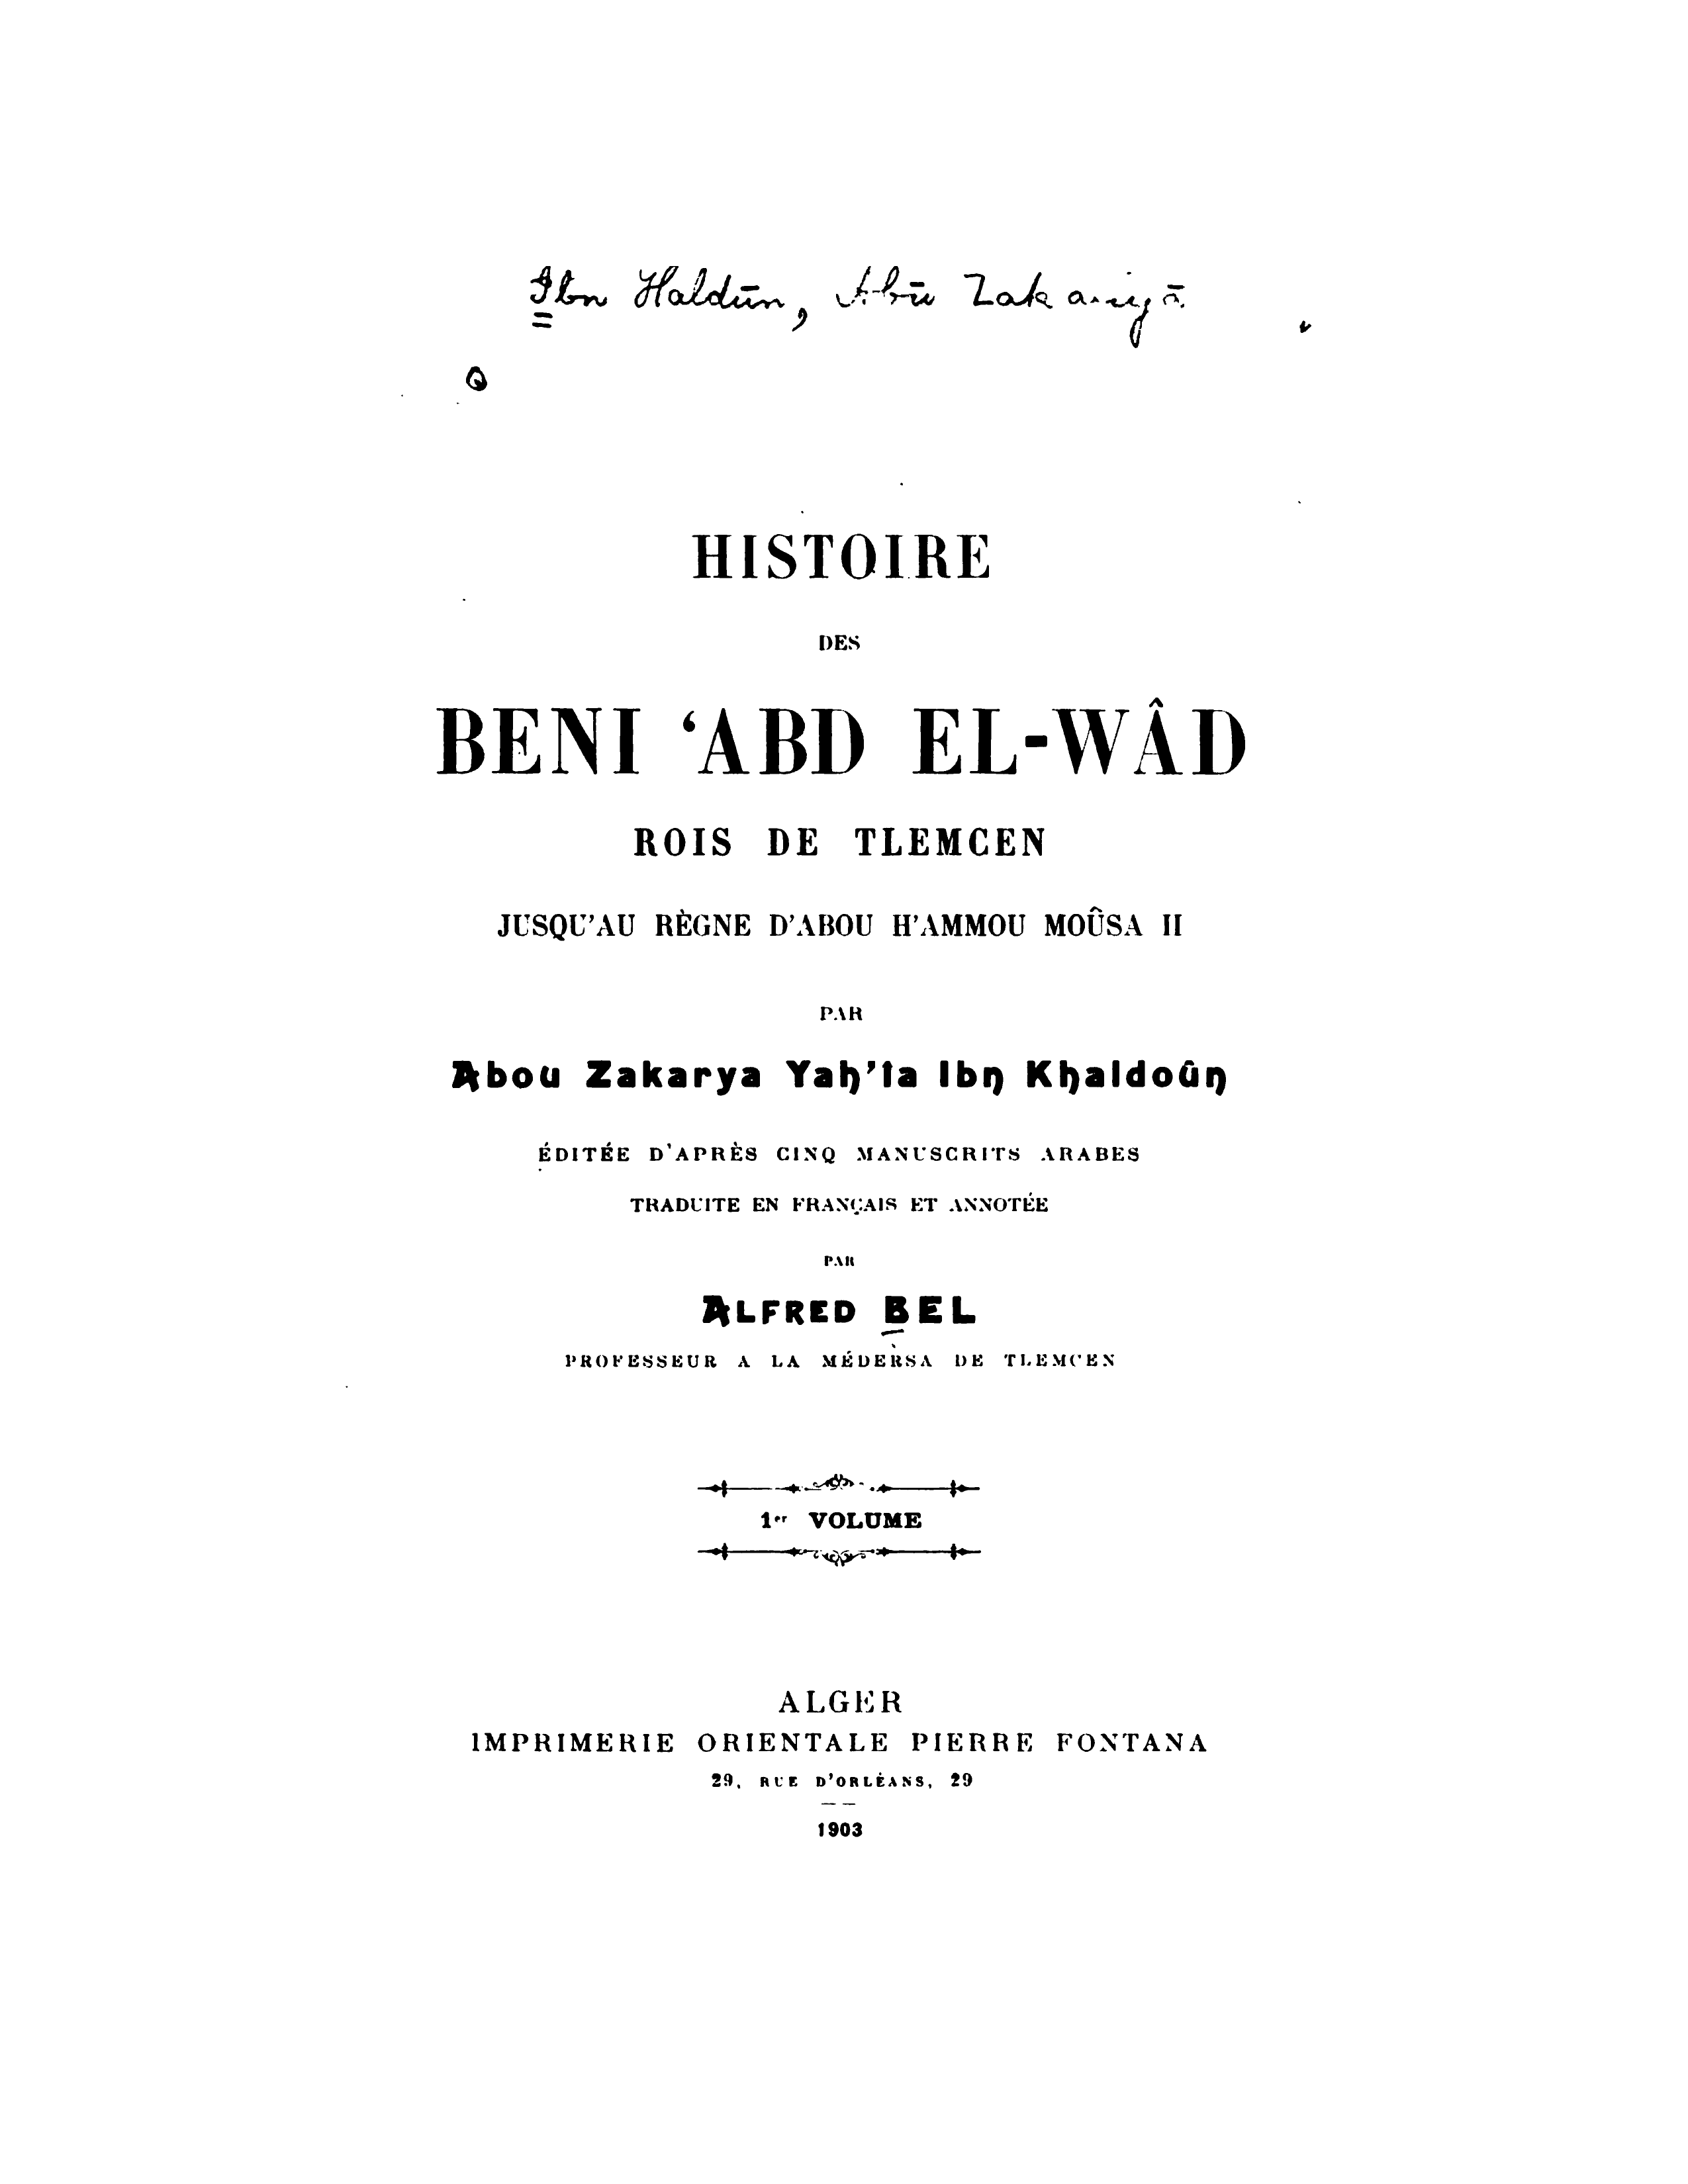 Ibn Haldūn, Abū Zakarīyā.
HISTOIRE
DES
BENI ‘ABD EL-WÂD
ROIS DE TLEMCEN
JUSQU'AU RÈGNE D'ABOU H'AMMOU MOÛSA II
PAR
Abou Zakarya Yah'ia Ibn Khaldoûn
ÉDITÉE D'APRÈS CINQ MANUSCRITS ARABES
TRADUITE EN FRANÇAIS ET ANNOTÉE
PAR
ALFRED BEL
PROFESSEUR A LA MÉDERSA DE TLEMCEN
1er VOLUME
ALGER
IMPRIMERIE ORIENTALE PIERRE FONTANA
29, RUE D'ORLÉANS, 29
1903